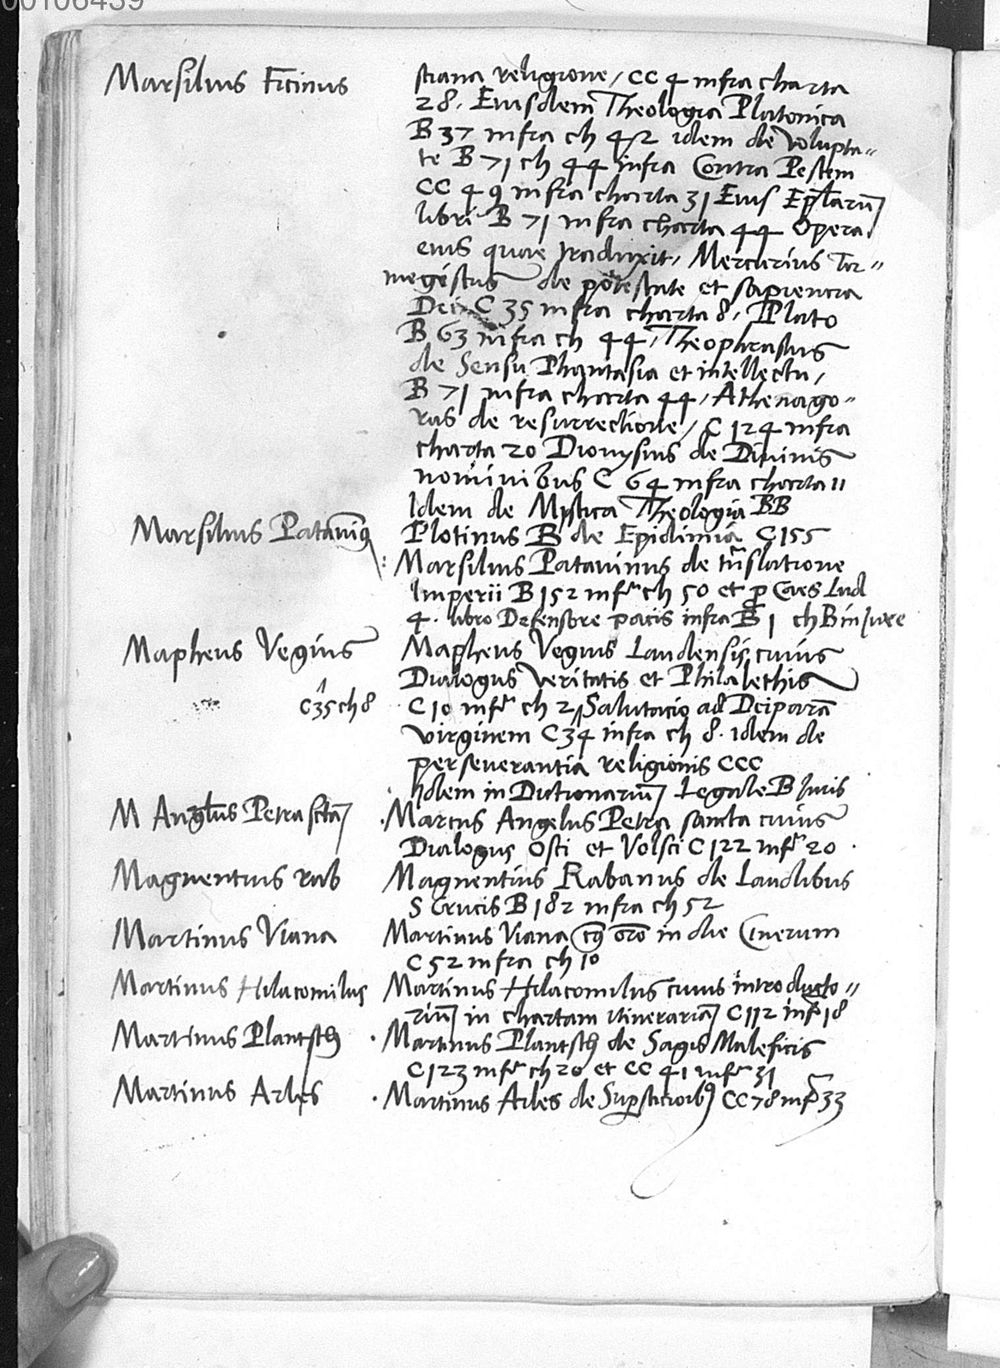 00106439
Marsilius Ficinus
stiana religione / CC 4 infra charta
28. Eiusdem Theologia Platonica
B 37 infra ch 42 idem de volupta=
te B 71 ch 44 infra Contra Pestem
CC 49 infra charta 31 Eius Eplarum
libri B 71 infra charta 44 Opera
eius quae traduxit, Mercurius Tri=
megestus de potestate et sapiencia
Dei C 35 infra charta 8, Plato
B 63 infra ch 44, Theophrastus
de Sensu Phantasia et intellectu,
B 71 infra charta 44, Athenago=
ras de resurrectione, C 124 infra
charta 20 Dionysius de Divinis
nominibus C 64 infra charta 11
Idem de Mystica Theologia BB
Plotinus B de Epidimia C 155
Marsilius Pataviniq
Marsilius Patavinus de translatione
Imperii B 152 infra ch 50 et p Caes Lud
4. libro Defensore pacis infra B 1 ch B in Jure
Mapheus Vegius
Mapheus Vegius Laudensis cuius
Dialogus veritatis et Philalethis
C 35 ch 8
C 10 infra ch 21 Salutacio ad Deiparam
virginem C 34 infra ch 8. idem de
perseverantia religionis CCC
Idem in Dictionarium Legale B Juris
M Anglus Petra scta
Marcus Angelus Petra sancta cuius
Dialogus Osti et Volsci C 122 infra 20
Magnentius rab
Magnentius Rabanus de Laudibus
S Crucis B 182 infra ch 52
Martinus Viana
Martinus Viana oro in die Cinerum
C 52 infra ch 10
Martinus Hilacomilus
Martinus Hilacomilus cuius introducto=
rium in chartam itinerariam C 112 infra 18
Martinus Plantsch
Martinus Plantsch de Sagis Maleficis
C 123 infra ch 20 et CC 41 infra 31
Martinus Arles
Martinus Arles de Superstitionibus CC 78 infra 33